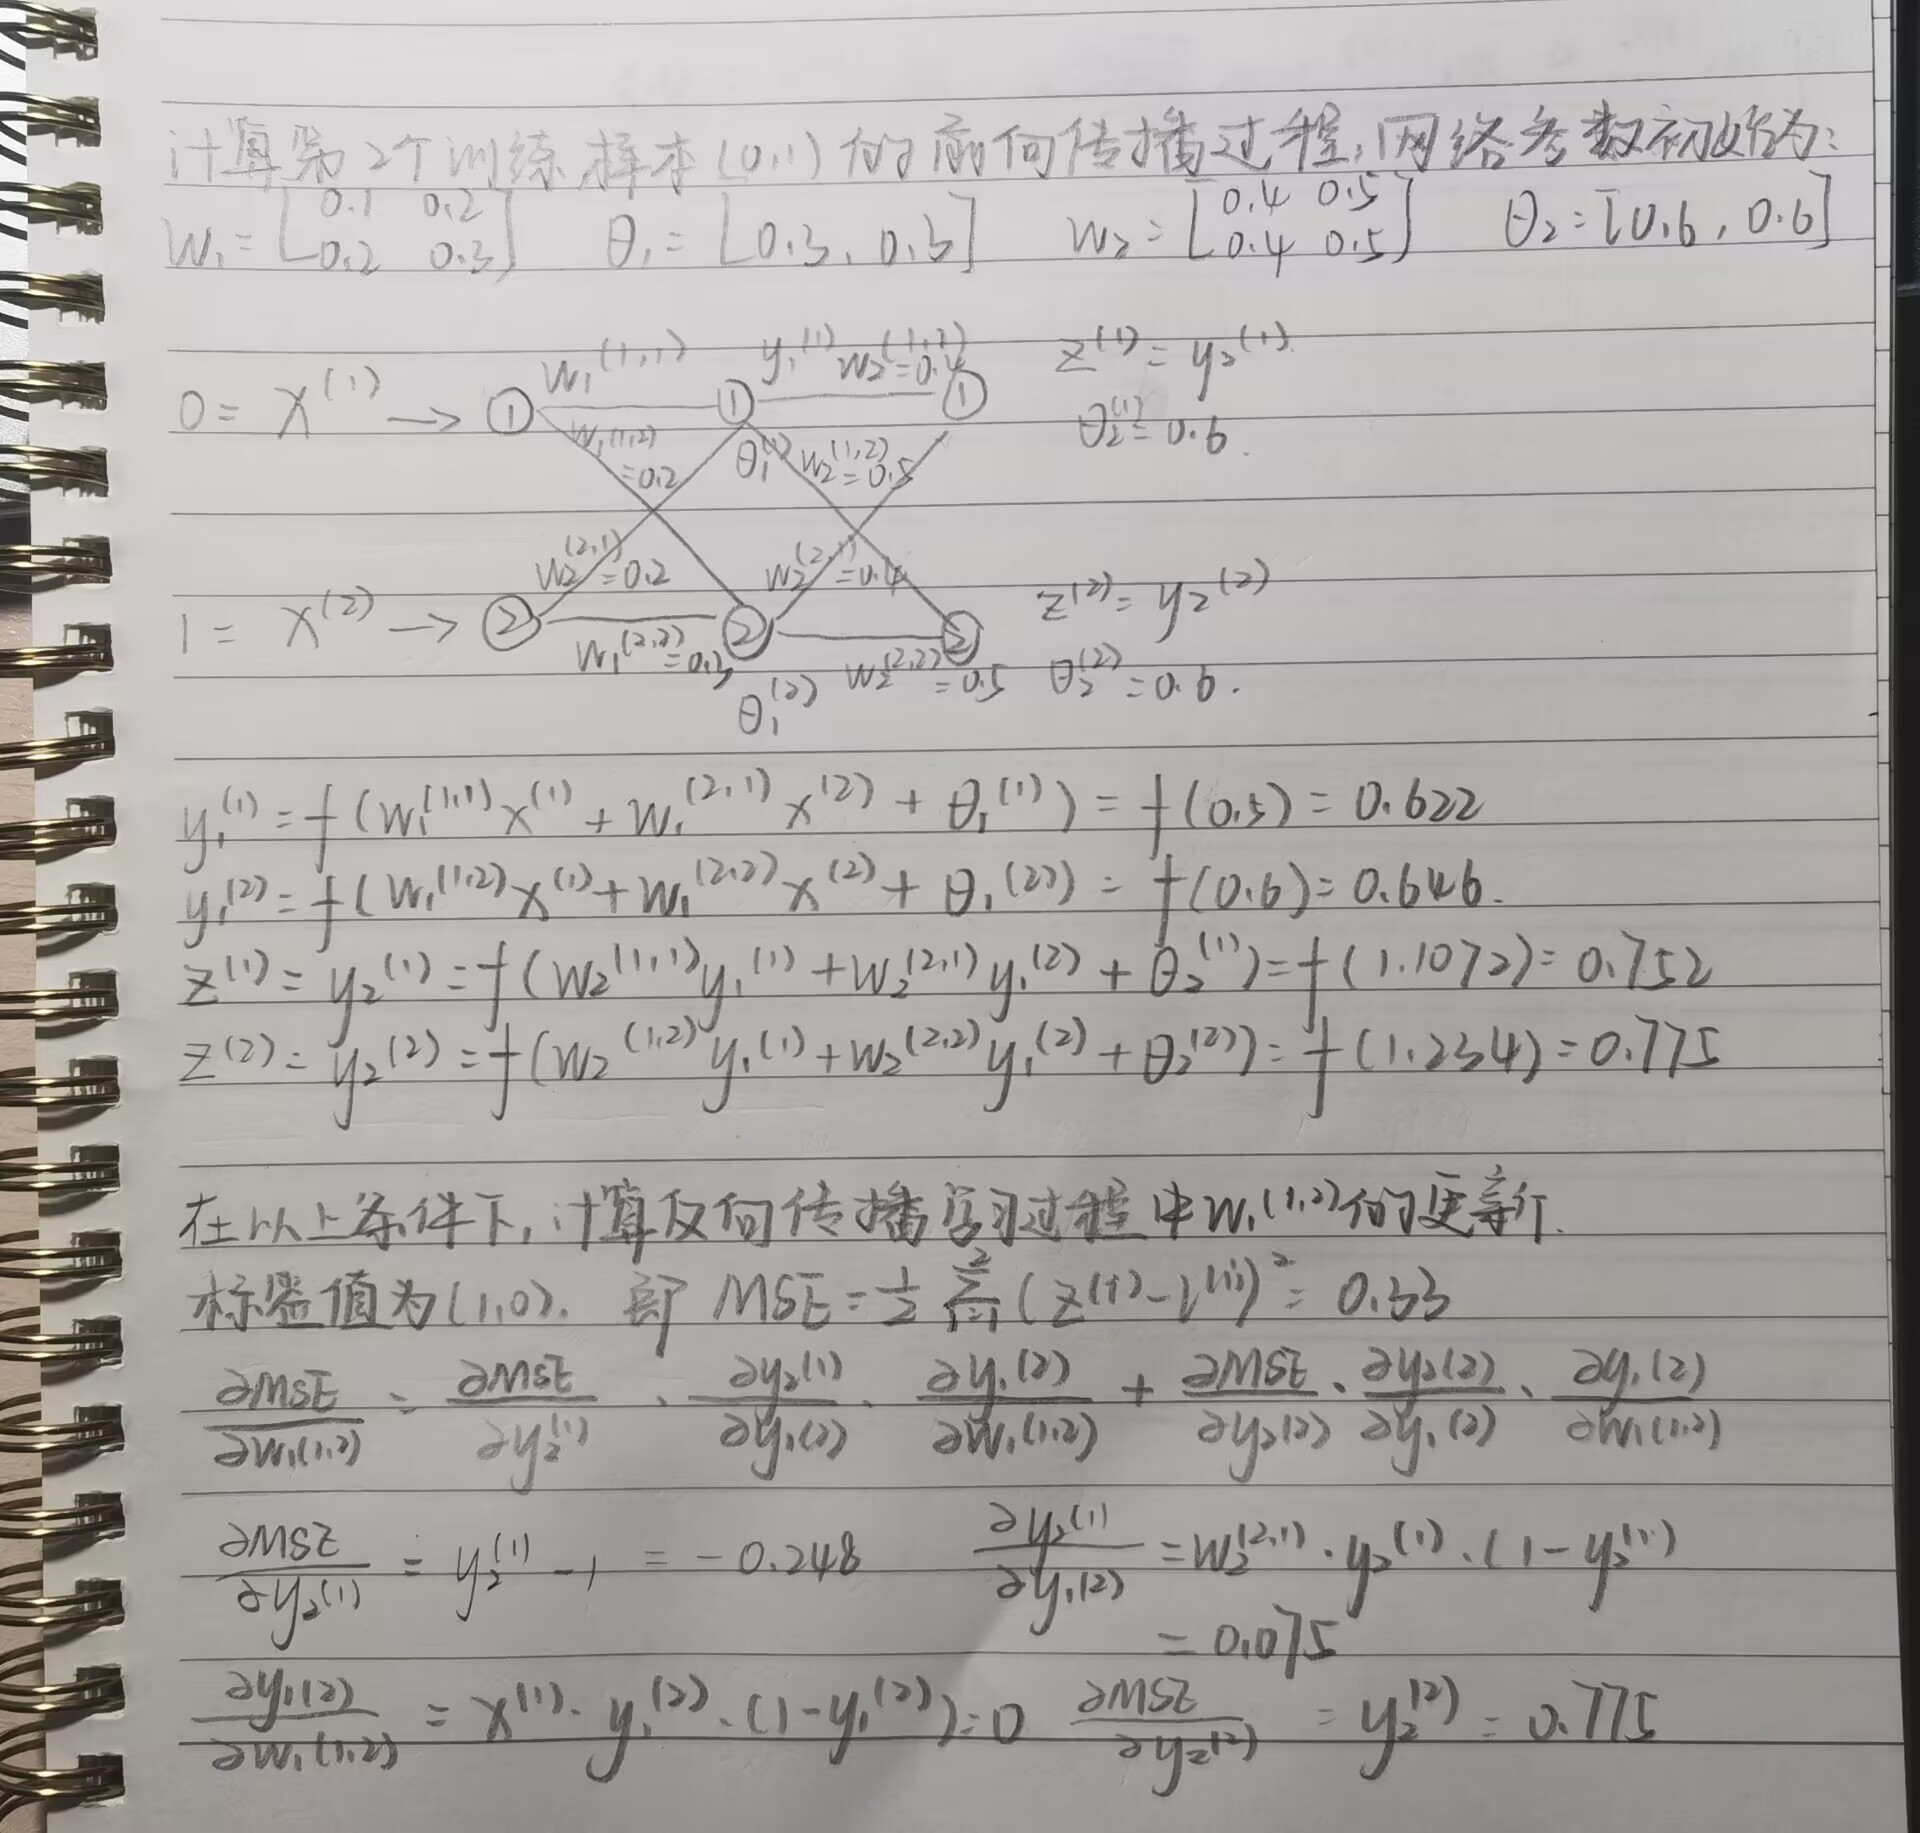 计算第2个训练样本(0,1)的前向传播过程,网络参数初始为:
W₁ = [0.1 0.2; 0.2 0.3] θ₁ = [0.3, 0.3] W₂ = [0.4 0.5; 0.4 0.5] θ₂ = [0.6, 0.6]
W₁^(1,1) y₁^(1) W₂^(1,1) = 0.4 z^(1) = y₂^(1).
0 = x^(1) → ① ① ① θ₂^(1) = 0.6.
W₁^(1,2) = 0.2 θ₁^(1) W₂^(1,2) = 0.5
W₂^(2,1) = 0.2 W₂^(2,1) = 0.4 z^(2) = y₂^(2)
1 = x^(2) → ② ② ②
W₁^(2,2) = 0.3 W₂^(2,2) = 0.5 θ₂^(2) = 0.6.
θ₁^(2)
y₁^(1) = f(W₁^(1,1) x^(1) + W₁^(2,1) x^(2) + θ₁^(1)) = f(0.5) = 0.622
y₁^(2) = f(W₁^(1,2) x^(1) + W₁^(2,2) x^(2) + θ₁^(2)) = f(0.6) = 0.646.
z^(1) = y₂^(1) = f(W₂^(1,1) y₁^(1) + W₂^(2,1) y₁^(2) + θ₂^(1)) = f(1.1072) = 0.752
z^(2) = y₂^(2) = f(W₂^(1,2) y₁^(1) + W₂^(2,2) y₁^(2) + θ₂^(2)) = f(1.234) = 0.775
在以上条件下,计算反向传播学习过程中W₁^(1,2)的更新.
标签值为(1,0). 即 MSE = 1/2 Σ_{i=1}^{2} (z^(i) - l^(i))² = 0.33
∂MSE/∂W₁(1,2) = ∂MSE/∂y₂^(1) · ∂y₂^(1)/∂y₁(2) · ∂y₁(2)/∂W₁(1,2) + ∂MSE/∂y₂(2) · ∂y₂(2)/∂y₁(2) · ∂y₁(2)/∂W₁(1,2)
∂MSE/∂y₂^(1) = y₂^(1) - 1 = -0.248 ∂y₂^(1)/∂y₁(2) = W₂^(2,1) · y₂^(1) · (1 - y₂^(1))
= 0.075
∂y₁(2)/∂W₁(1,2) = x^(1) · y₁^(2) · (1 - y₁^(2)) = 0 ∂MSE/∂y₂^(2) = y₂^(2) = 0.775